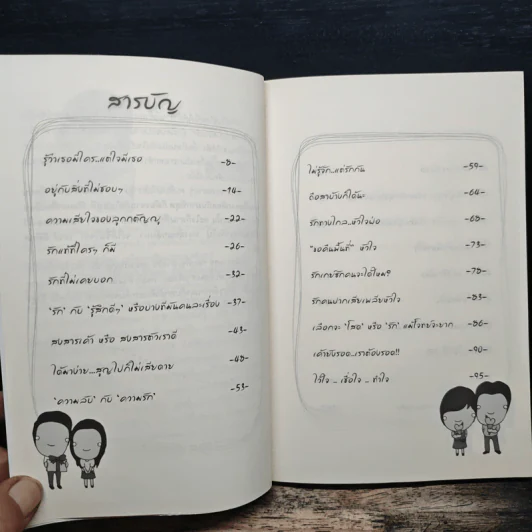 สารบัญ
รู้ว่าเธอมีใคร..แต่ใจมีเธอ -8-
อยู่กับสิ่งที่ไม่ชอบๆ -14-
ความเสียใจของลูกกตัญญู -22-
รักแท้ที่ใครๆ ก็มี -26-
รักที่ไม่เคยบอก -32-
"รัก" กับ "รู้สึกดีๆ" หรือบางทีมันคนละเรื่อง -37-
สงสารเค้า หรือ สงสารตัวเราดี -43-
ได้มาง่าย...สูญไปก็ไม่เสียดาย -48-
"ความลับ" กับ "ความรัก" -53-
ไม่รู้จัก...แต่รักกัน -59-
ถือสาบ้างก็ได้นะ -64-
รักทางไกล...หัวใจพ่อ -68-
"ขอคืนพื้นที่" หัวใจ -73-
รักเกย์ซักคนจะได้ไหม? -78-
รักคนปากเสียเพลียหัวใจ -83-
เลือกจะ "โสด" หรือ "รัก" แม้โจทย์จะยาก -86-
เค้ายังรอด...เราต้องรอด!! -90-
ไว้ใจ .. เชื่อใจ .. ทำใจ -95-